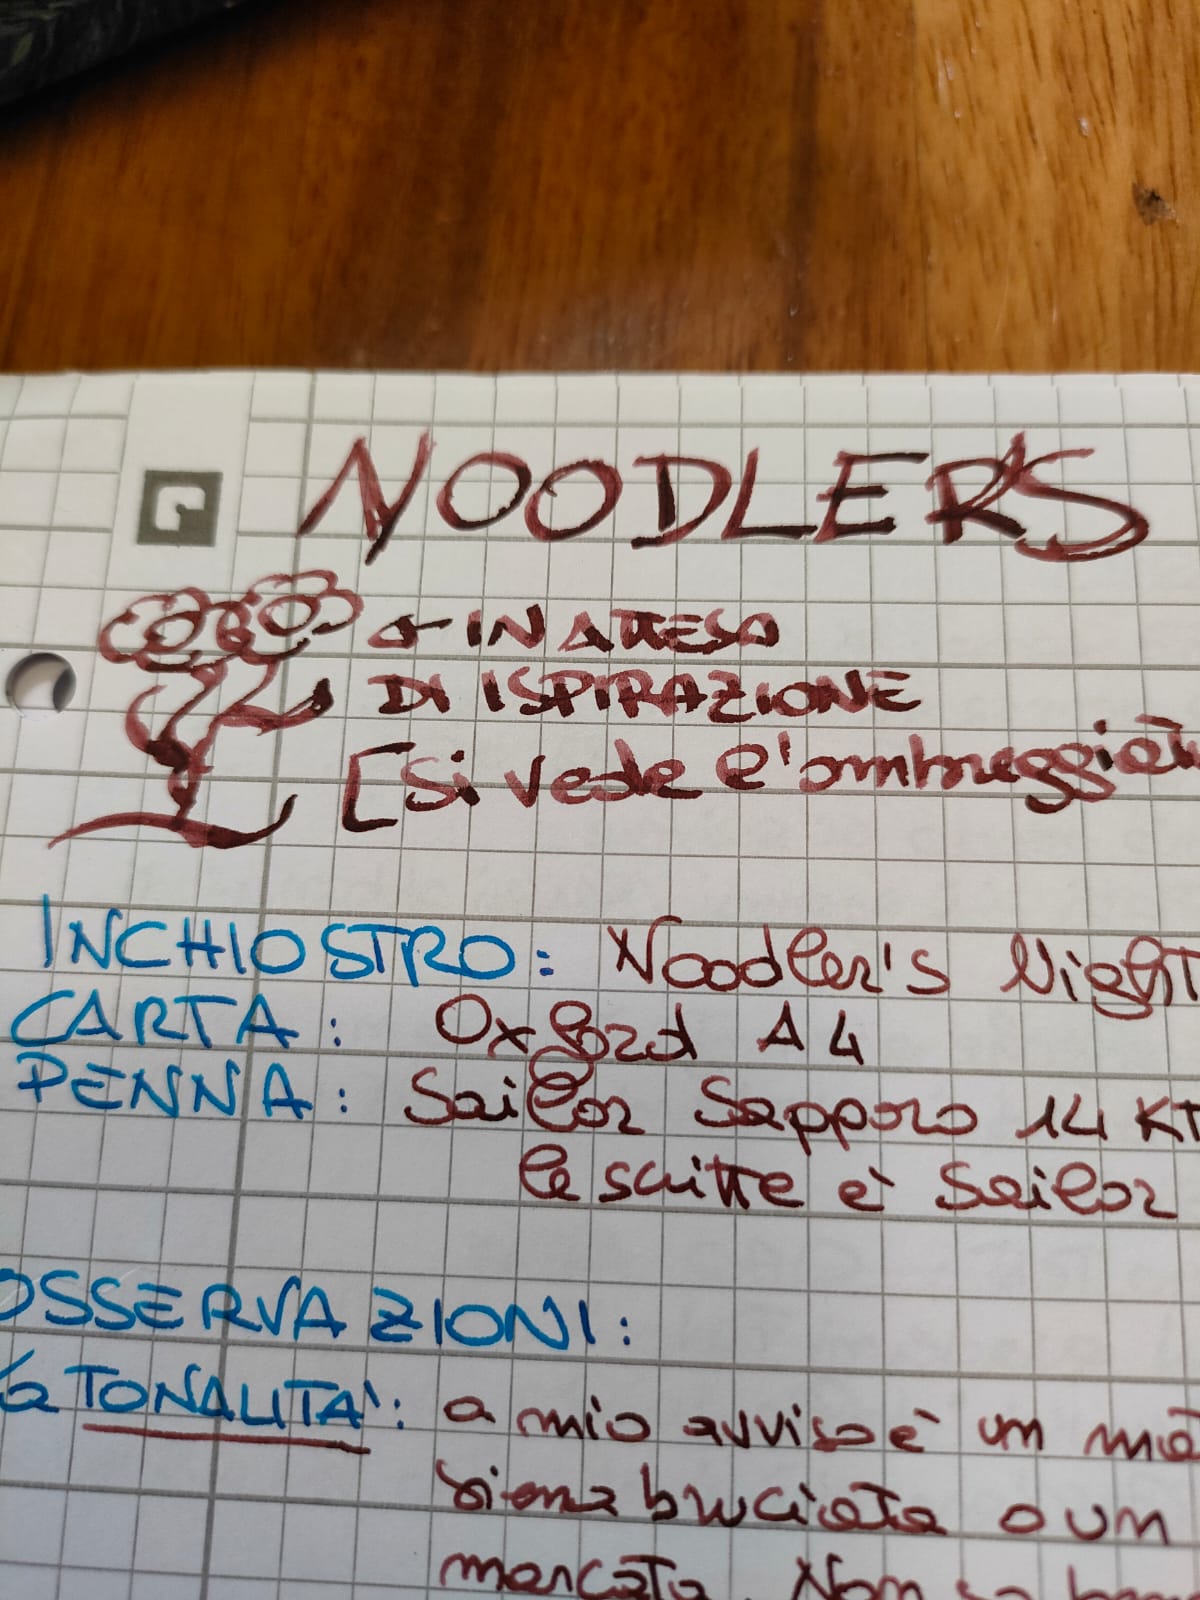 NOODLER'S
← IN ATTESA
DI ISPIRAZIONE
[Si vede l'ombreggiat
INCHIOSTRO: Noodler's Night
CARTA: Oxford A4
PENNA: Sailor Sapporo 14 KT
le scritte è Sailor
OSSERVAZIONI:
TONALITA': a mio avviso è un
siena bruciata o un
marcata. Non so